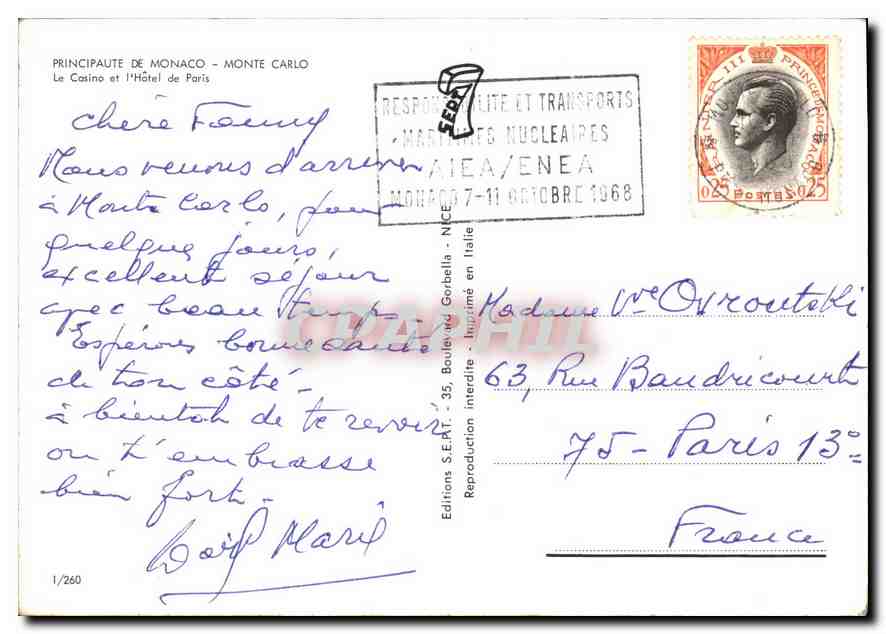 PRINCIPAUTE DE MONACO - MONTE CARLO
Le Casino et l'Hôtel de Paris
chère Fanny
Nous venons d'arriver
à Monte Carlo, pour
quelques jours,
excellent séjour
avec beau temps.
Espérons bonne santé
de ton côté -
à bientôt de te revoir
on t'embrasse
bien fort -
Marie
1/260
SEPT
RESPONSABILITE ET TRANSPORTS
MARITIMES NUCLEAIRES
AIEA/ENEA
MONACO 7-11 OCTOBRE 1968
RAINIER III PRINCE DE MONACO
0.25 POSTES 0.25
Editions S.E.P.T. - 35, Boulevard Gorbella - NICE
Reproduction interdite - Imprimé en Italie
CPAPHIL
Madame Vve Ovroutski
63, Rue Baudricourt
75 - Paris 13e
France